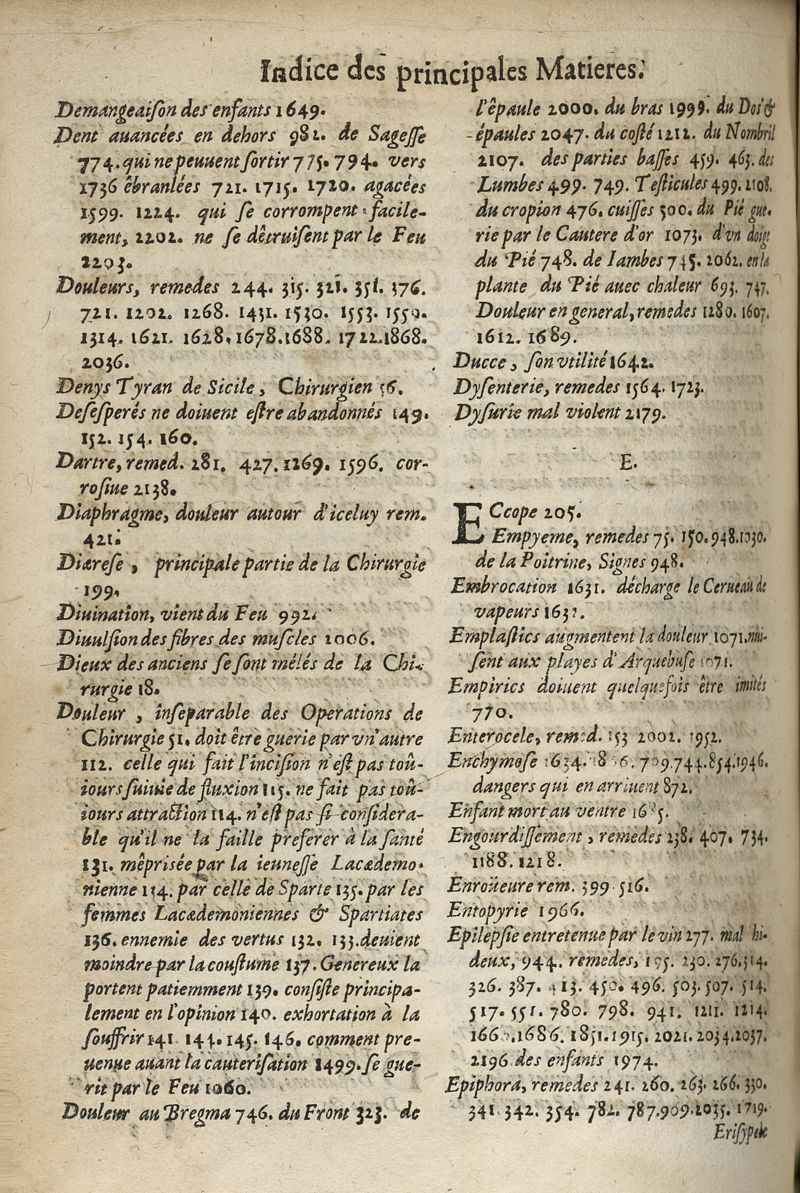 Indice des principales Matieres.
Demangeaiſon des enfants 1649.
Dent auancées en dehors 982. de Sageſſe
774. qui ne peuuent ſortir 775. 794. vers
1736 ébranlées 721. 1715. 1720. agacées
1599. 1224. qui ſe corrompent facile-
ment, 2202. ne ſe détruiſent par le Feu
2203.
Douleurs, remedes 244. 315. 321. 351. 376.
721. 1202. 1268. 1431. 1530. 1553. 1559.
1314. 1621. 1628. 1678. 1688. 1722. 1868.
2036.
Denys Tyran de Sicile, Chirurgien 56.
Deſeſperés ne doiuent eſtre abandonnés 149.
152. 154. 160.
Dartre, remed. 281. 427. 1269. 1596. cor-
roſiue 2138.
Diaphragme, douleur autour d'iceluy rem.
421.
Diæreſe, principale partie de la Chirurgie
199.
Diuination, vient du Feu 992.
Diuulſion des fibres des muſcles 2006.
Dieux des anciens ſe ſont mélés de la Chi-
rurgie 18.
Douleur, inſeparable des Operations de
Chirurgie 51. doit être guerie par vn'autre
112. celle qui fait l'inciſion n'eſt pas toû-
iours ſuiuie de fluxion 115. ne fait pas toû-
iours attraction 114. n'eſt pas ſi conſidera-
ble qu'il ne la faille preferer à la ſanté
131. mépriſée par la ieuneſſe Lacædemo-
nienne 134. par celle de Sparte 135. par les
femmes Lacædemoniennes & Spartiates
136. ennemie des vertus 132. 133. deuient
moindre par la couſtume 137. Genereux la
portent patiemment 139. conſiſte principa-
lement en l'opinion 140. exhortation à la
ſouffrir 141 144. 145. 146. comment pre-
uenue auant la cauteriſation 1499. ſe gue-
rit par le Feu 1060.
Douleur au Bregma 746. du Front 323. de
l'épaule 2000. du bras 1999. du Dos &
épaules 2047. du coſté 1212. du Nombril
2107. des parties baſſes 459. 463. des
Lumbes 499. 749. Teſticules 499. 2108.
du cropion 476. cuiſſes 500. du Pié gue-
rie par le Cautere d'or 1073. d'vn doigt
du Pié 748. de Iambes 745. 2062. en la
plante du Pié auec chaleur 693. 747.
Douleur en general, remedes 1280. 1607.
1612. 1689.
Ducce, ſon vtilité 1642.
Dyſenterie, remedes 1564. 1723.
Dyſurie mal violent 2179.
E.
ECcope 205.
Empyeme, remedes 75. 150. 948. 1030.
de la Poitrine, Signes 948.
Embrocation 1631. décharge le Cerueau de
vapeurs 1632.
Emplaſtics augmentent la douleur 1071. nui-
ſent aux playes d'Arquebuſe 1071.
Empirics doiuent quelquefois être imités
770.
Enterocele, remed. 153 2002. 1952.
Enchymoſe 1634. 709. 744. 854. 1946.
dangers qui en arriuent 872.
Enfant mort au ventre
Engourdiſſement, remedes 238. 407. 734.
1188. 1218.
Enroüeure rem. 399. 516.
Entopyrie 1966.
Epilepſie entretenue par le vin 277. mal hi-
deux, 944. remedes, 195. 230. 276. 314.
326. 387. 413. 450. 496. 503. 507. 514.
517. 551. 780. 798. 941. 1211. 1214.
1686. 1851. 1915. 2021. 2034. 2037.
2196 des enfants 1974.
Epiphora, remedes 241. 260. 263. 266. 330.
341 342. 354. 782. 787. 909. 2035. 1719.
Eriſypele